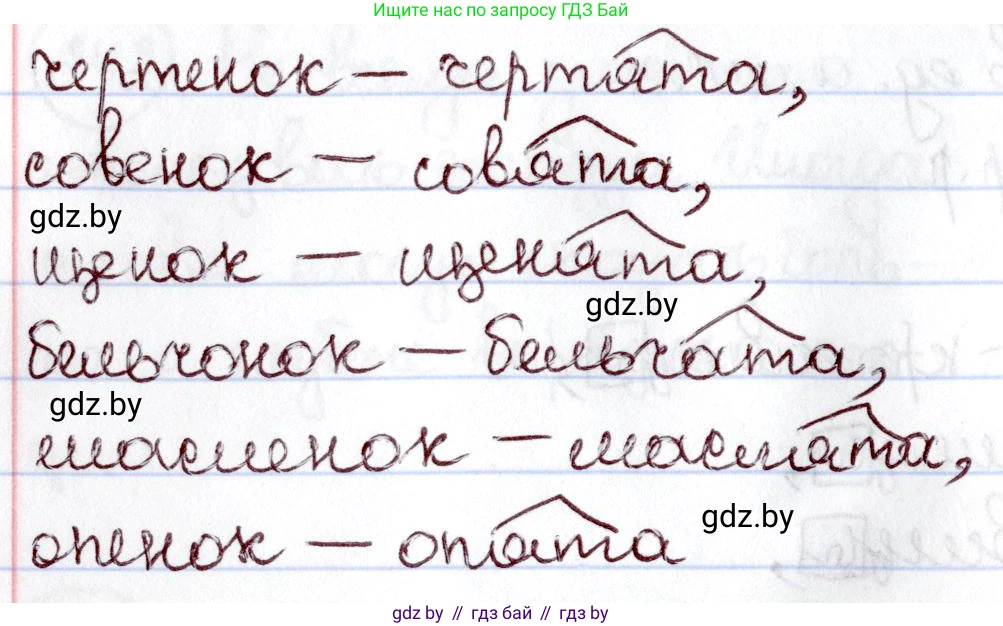 Ищите нас по запросу ГДЗ Бай
чертенок – чертята,
совенок – совята,
gdz.by
щенок – щенята,
gdz.by
бельчонок – бельчата,
gdz.by
масленок – маслята,
gdz.by
опенок – опята
gdz by // гдз бай // гдз by